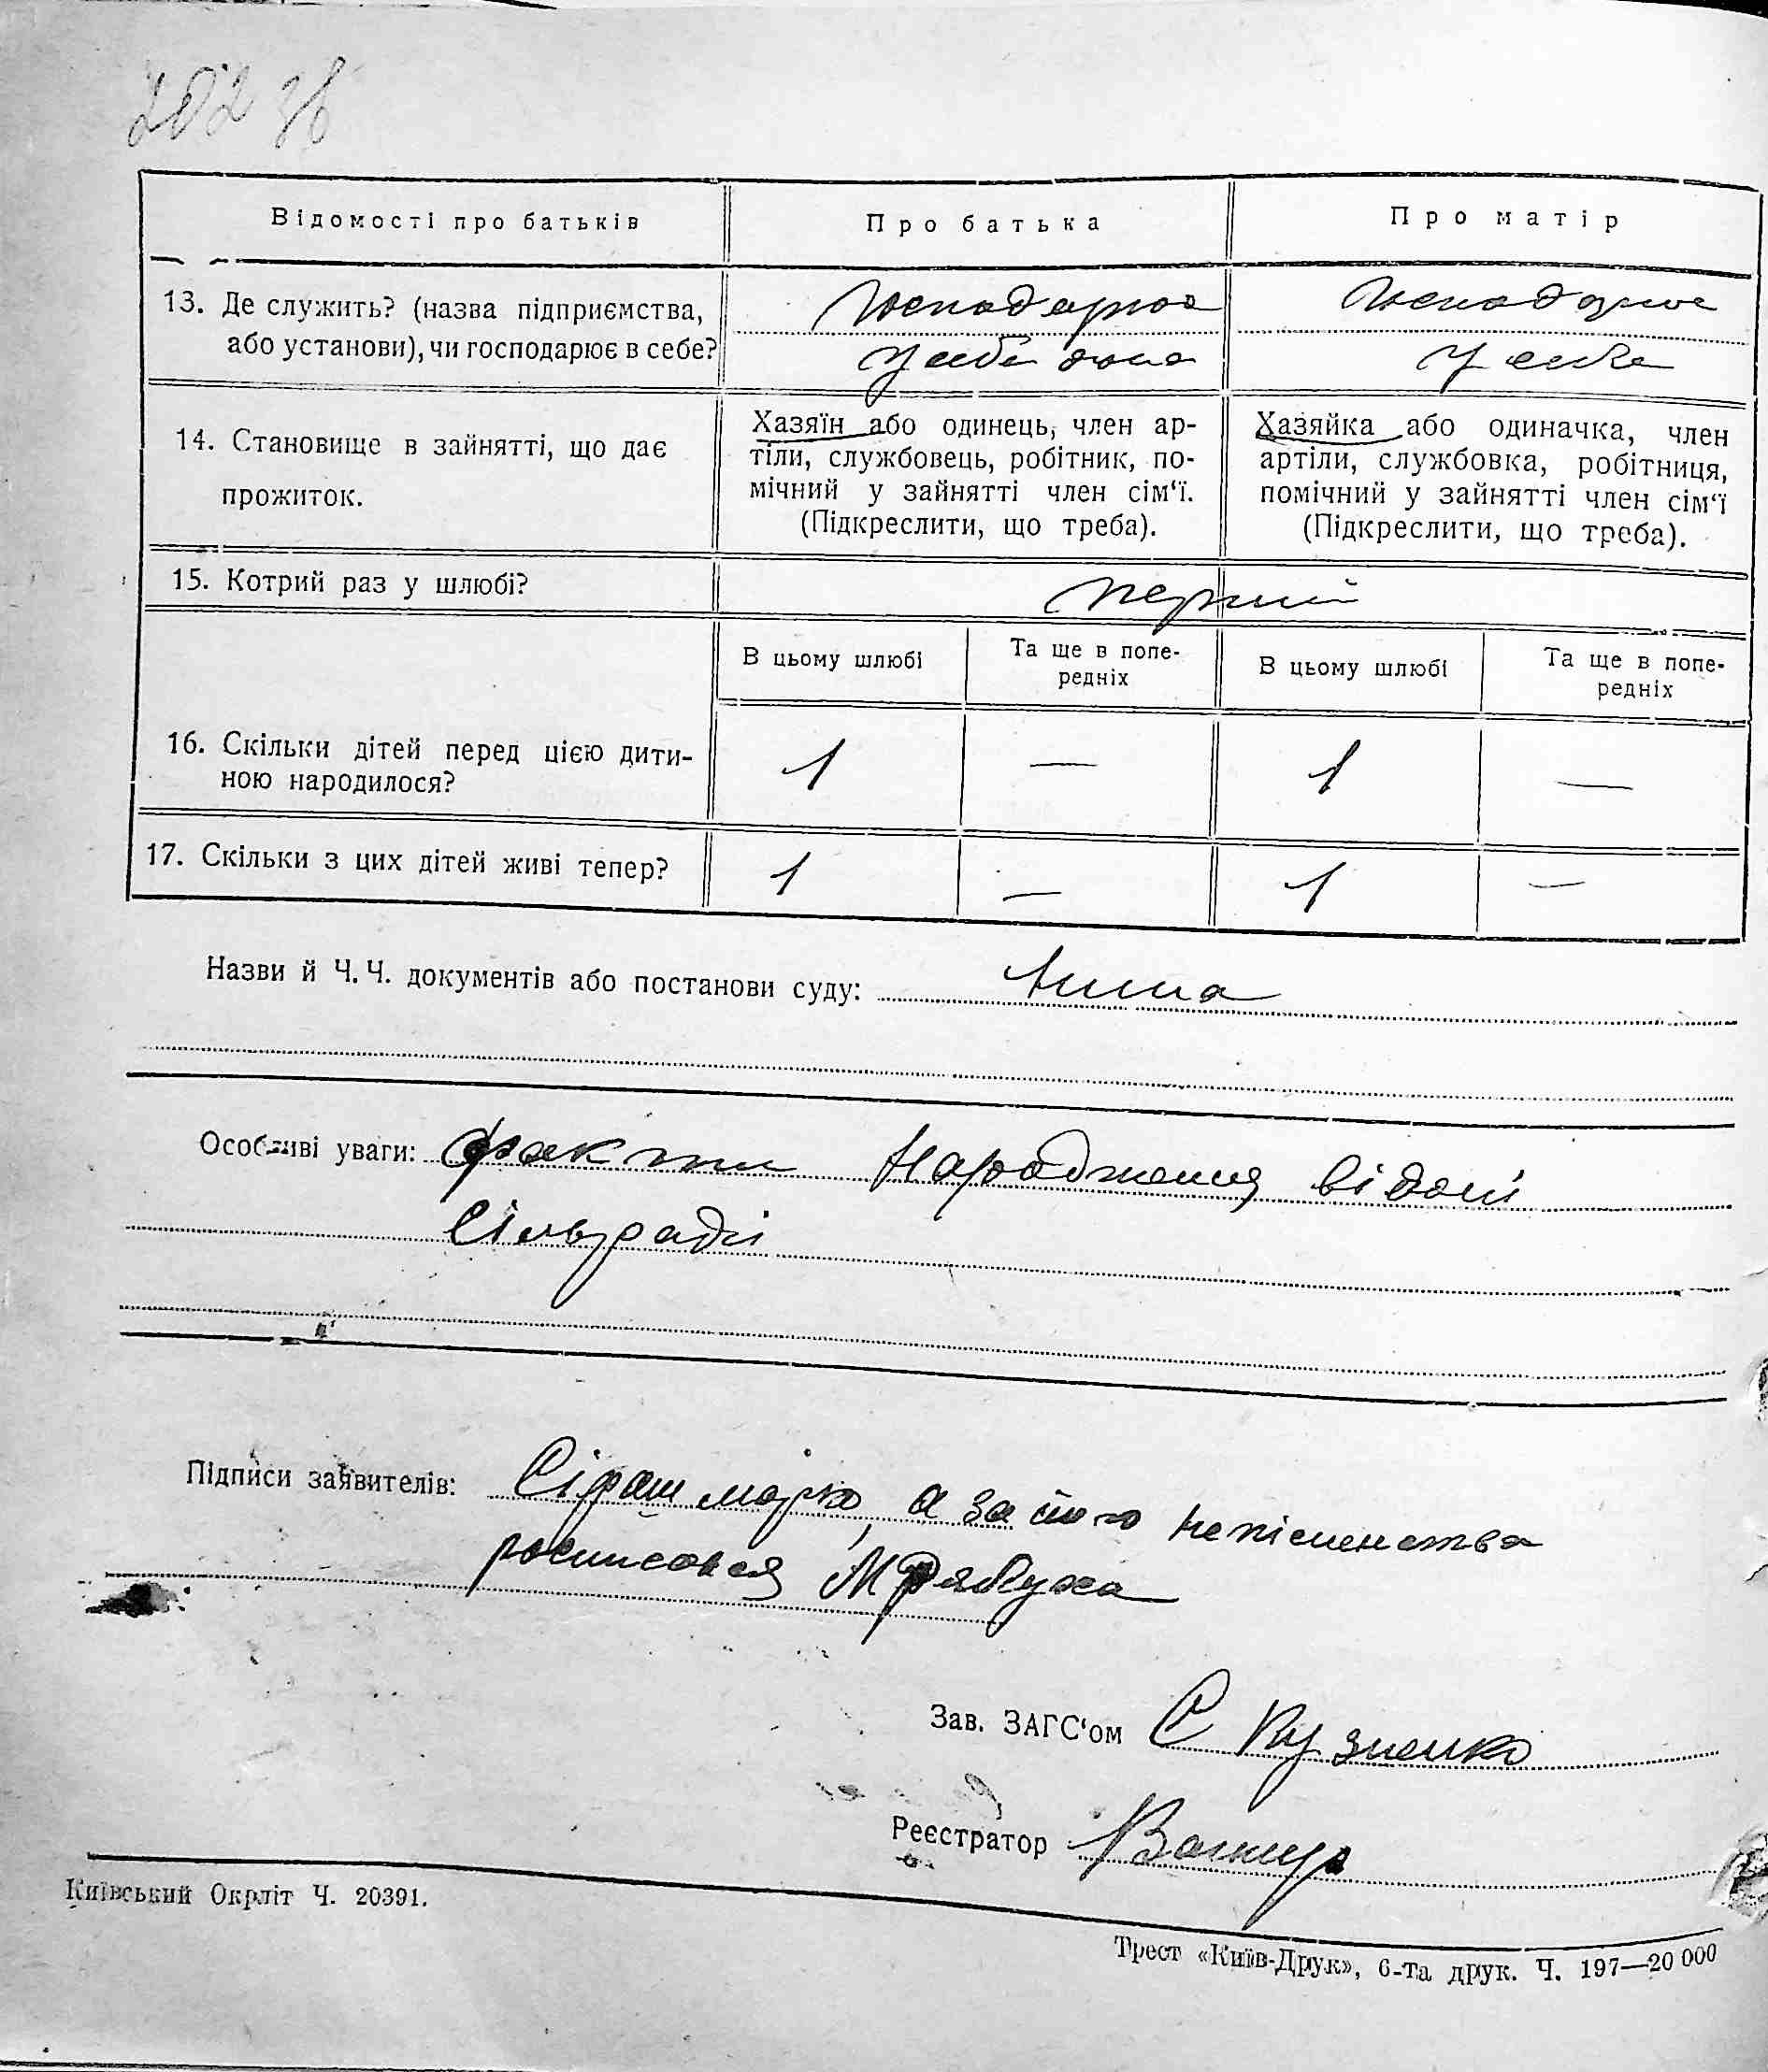 202 зв
Відомості про батьків
Про батька
Про матір
13. Де служить? (назва підприємства,
або установи), чи господарює в себе?
господарює
у себе дома
господарює
у себе
14. Становище в зайнятті, що дає
прожиток.
Хазяїн або одинець, член ар-
тіли, службовець, робітник, по-
мічний у зайнятті член сім‘ї.
(Підкреслити, що треба).
Хазяйка або одиначка, член
артіли, службовка, робітниця,
помічний у зайнятті член сім‘ї
(Підкреслити, що треба).
15. Котрий раз у шлюбі?
перший
В цьому шлюбі
Та ще в попе-
редніх
В цьому шлюбі
Та ще в попе-
редніх
16. Скільки дітей перед цією дити-
ною народилося?
1 — 1 —
17. Скільки з цих дітей живі тепер?
1 — 1 —
Назви й Ч. Ч. документів або постанови суду:
Особливі уваги: факти народження відомі
сільраді
Підписи заявителів: Сіраш Марко, а за його неписьменства
росписався М Рябуха
Зав. ЗАГС‘ом С Кузменко
Реєстратор
Київський Окрліт Ч. 20391.
Трест «Київ-Друк», 6-та друк. Ч. 197—20 000